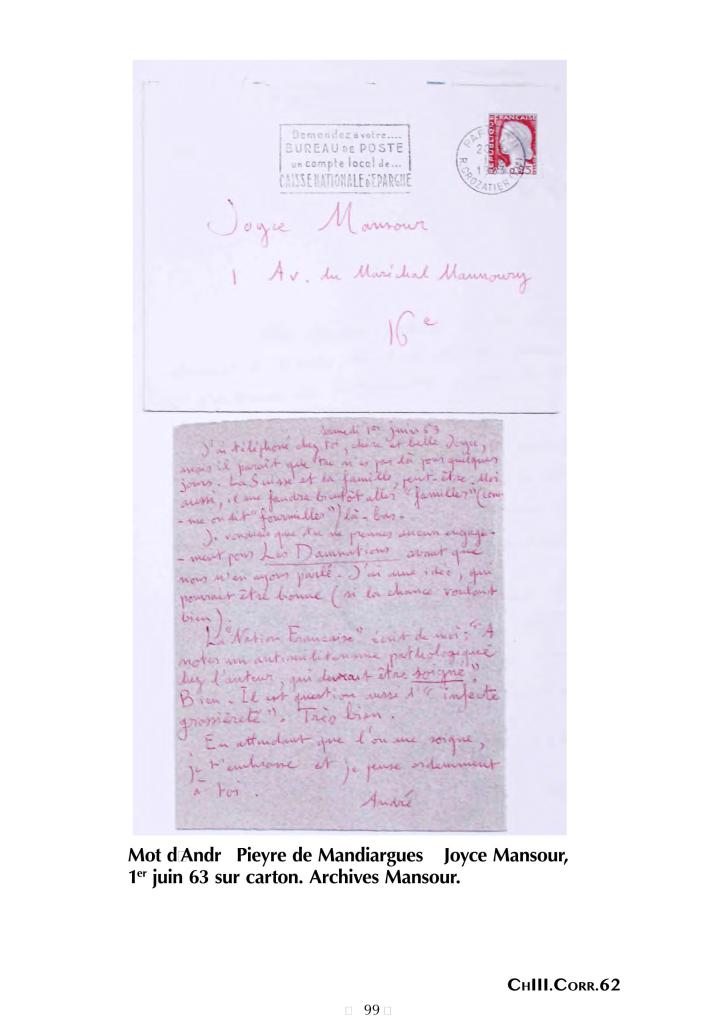 Demandez à votre....
BUREAU DE POSTE
un compte local de...
CAISSE NATIONALE D'EPARGNE
PAR
R. CROZATIER
FRANCAISE
0,25
Joyce Mansour
1 Av. du Maréchal Maunoury
16e
Samedi 1er juin 63
J'ai téléphoné chez toi, chère et belle Joyce,
mais il paraît que tu n'es pas là pour quelques
jours. La Suisse et la famille, peut-être. Moi
aussi, il me faudra bientôt aller "familles" (com-
-me on dit "fourmilles") là-bas.
Je voudrais que tu ne prennes aucun engage-
-ment pour Les Damnations avant que
nous n'en ayons parlé. J'ai une idée, qui
pourrait être bonne (si la chance voulait
bien).
"La Nation Française" écrit de moi: "A
noter un antimilitarisme pathologique
chez l'auteur, qui devrait être soigné".
Bien. Il est question aussi d'"infecte
grossièreté". Très bien.
En attendant que l'on me soigne,
je t'embrasse et je pense ardemment
à toi.
André
Mot d Andr Pieyre de Mandiargues Joyce Mansour,
1er juin 63 sur carton. Archives Mansour.
CHIII.CORR.62
99